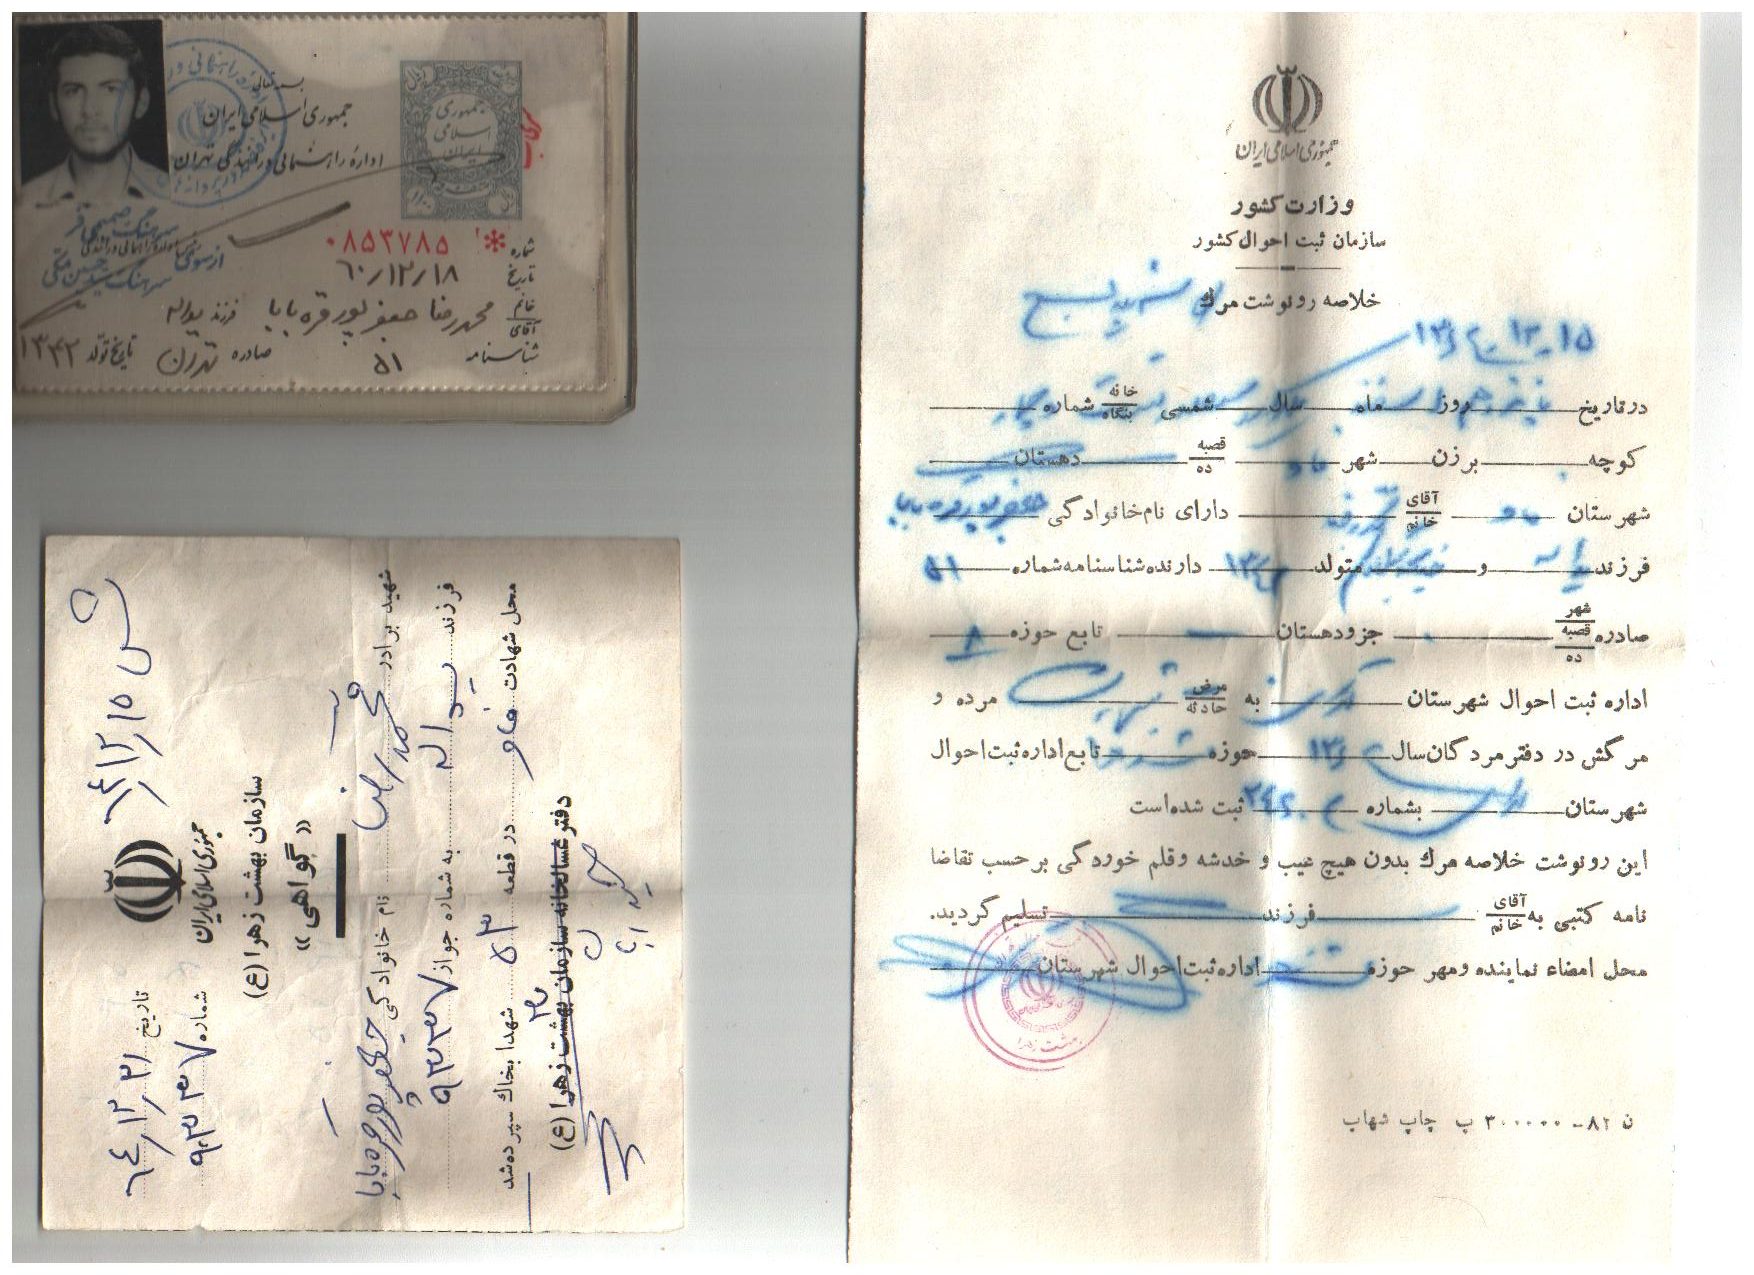 بسمه تعالی
جمهوری اسلامی ایران
اداره راهنمائی و رانندگی تهران
جمهوری
اسلامی
ایران
سرهنگ صمیمی فر
از سوی سرهنگ حسن ملکی
شماره ۰۸۵۳۷۸۵
تاریخ ۶۰/۱۲/۱۸
خانم
آقای محمدرضا جعفرپور قره بابا فرزند یداله
شناسنامه ۵۱ صادره تهران تاریخ تولد ۱۳۴۲
جمهوری اسلامی ایران
وزارت کشور
سازمان ثبت احوال کشور
خلاصه رونوشت مرگ
۱۵-۱۲-۱۳۶۴
در تاریخ پانزدهم روز ماه اسفند سال شمسی خانه
بنگاه شماره
کوچه برزن شهر فاو قصبه
ده دهستان
شهرستان فاو آقای
خانم محمدرضا دارای نام خانوادگی جعفرپور قره بابا
فرزند یداله و متولد ۱۳۴۲ دارنده شناسنامه شماره ۵۱
صادره شهر
قصبه
ده جزو دهستان تابع حوزه ۸
اداره ثبت احوال شهرستان تهران به مرض
حادثه شهادت مرده و
مرگش در دفتر مردگان سال حوزه تابع اداره ثبت احوال
شهرستان تهران بشماره ثبت شده است
این رونوشت خلاصه مرگ بدون هیچ عیب و خدشه و قلم خوردگی بر حسب تقاضا
نامه کتبی به آقای
خانم فرزند تسلیم گردید.
محل امضاء نماینده و مهر حوزه اداره ثبت احوال شهرستان
بهشت زهرا
ن ۸۲- ۳۰۰۰۰۰ ب چاپ شهاب
ش ۶۴/۱۲/۱۵
جمهوری اسلامی ایران
تاریخ ۶۴/۱۲/۲۱
شماره ۹۳۳۷
سازمان بهشت زهرا (ع)
«گواهی»
شهید برادر محمدرضا نام خانوادگی جعفرپور قره بابا
فرزند یداله به شماره جواز ۹۳۳۷
محل شهادت فاو در قطعه ۵۳ شهدا بخاك سپرده شد
دفتر غسالخانه سازمان بهشت زهرا (ع)